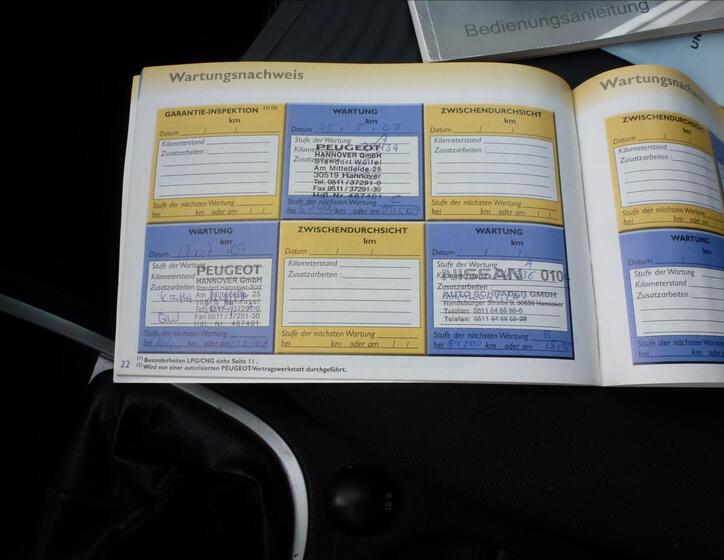 Bedienungsanleitung
Wartungsnachweis
GARANTIE-INSPEKTION (1) (2)
km
Datum / /
Kilometerstand
Zusatzarbeiten :
Stufe der nächsten Wartung
bei km oder am / /
WARTUNG
km
Datum
Stufe der Wartung A
PEUGEOT
HANNOVER GmbH
Standort Wülfel
Am Mittelfelde 25
30519 Hannover
Tel. 0511/37291-0
Fax 0511/37291-30
Hdl-Nr. 487401
Stufe der nächsten Wartung C
bei km oder am
ZWISCHENDURCHSICHT
km
Datum / /
Kilometerstand
Zusatzarbeiten :
Stufe der nächsten Wartung
bei km oder am / /
WARTUNG
km
Datum
Stufe der Wartung
Kilometerstand
Zusatzarbeiten
PEUGEOT
HANNOVER GmbH
Standort Hannover-Süd
Am Mittelfelde 25
30519 Hannover
Fax 0511/37291-30
Hdl.-Nr. 487401
Stufe der nächsten Wartung
bei km oder am
ZWISCHENDURCHSICHT
km
Datum / /
Kilometerstand
Zusatzarbeiten :
Stufe der nächsten Wartung
bei km oder am / /
WARTUNG
km
Datum / /
Stufe der Wartung A
Kilometerstand
Zusatzarbeiten :
NISSAN 010
AUTO SCHRADER GMBH
Telefon: 0511 64 66 66-0
Telefax: 0511 64 66 66-29
Stufe der nächsten Wartung B
bei km oder am
22
(1) Besonderheiten LPG/CNG siehe Seite 11 .
(2) Wird von einer autorisierten PEUGEOT-Vertragswerkstatt durchgeführt.
Wartungsnachweis
ZWISCHENDURCHSICHT
km
Datum / /
Kilometerstand
Zusatzarbeiten :
Stufe der nächsten Wartung
bei km oder am
WARTUNG
km
Datum / /
Stufe der Wartung
Kilometerstand
Zusatzarbeiten :
Stufe der nächsten Wartung
bei km oder am
12 V